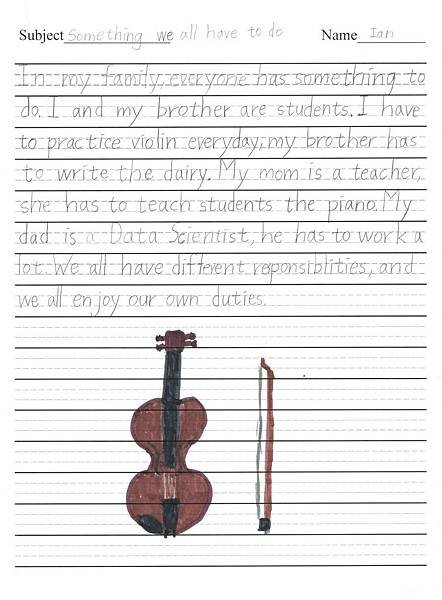 Subject Something we all have to do Name Ian
In my family, everyone has something to
do. I and my brother are students. I have
to practice violin everyday, my brother has
to write the dairy. My mom is a teacher,
she has to teach students the piano. My
dad is a Data Scientist, he has to work a
lot. We all have different reponsiblities, and
we all enjoy our own duties.